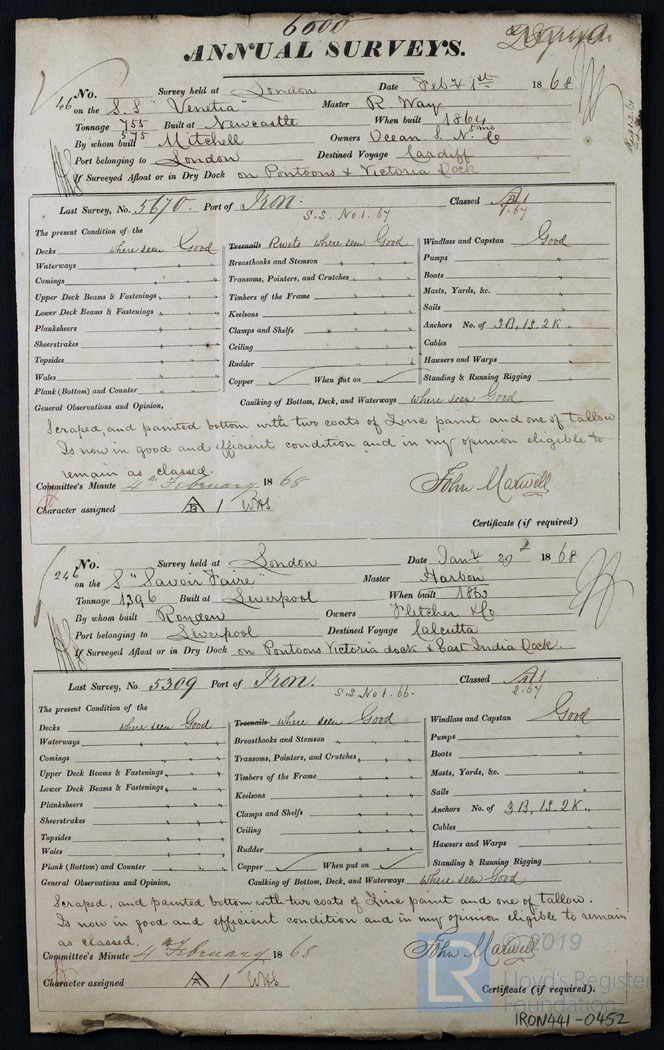 6000
ANNUAL SURVEYS.
46 No. Survey held at London Date Feby 1st 1868
on the S.S "Venetia" Master R Way
Tonnage 755 575 Built at Newcastle When built 1864 5mo
By whom built Mitchell Owners Ocean S. N. Co
Port belonging to London Destined Voyage Cardiff
If Surveyed Afloat or in Dry Dock on Pontoons & Victoria Dock
Last Survey, No. 5670. Port of Iron. Classed A 1
S.S. No.1. 67 9.67
The present Condition of the
Decks where seen Good Treenails Rivets where seen Good Windlass and Capstan Good
Waterways " " Breasthooks and Stemson " " " Pumps "
Comings " " Transoms, Pointers, and Crutches " " " Boats "
Upper Deck Beams & Fastenings " " " Timbers of the Frame " " " Masts, Yards, &c. "
Lower Deck Beams & Fastenings " " " Keelsons " " " Sails "
Planksheers " " " Clamps and Shelfs " " " Anchors No. of 3B, 1S. 2K "
Sheerstrakes " " " Ceiling " " " Cables "
Topsides " " " Rudder " " " Hawsers and Warps "
Wales " " " Copper When put on Standing & Running Rigging "
Plank (Bottom) and Counter " " "
General Observations and Opinion, Caulking of Bottom, Deck, and Waterways where seen Good
Scraped, and painted bottom with two coats of Zinc paint and one of tallow
Is now in good and efficient condition and in my opinion eligible to
remain as classed.
Committee's Minute 4th February 1868 John Maxwell
Character assigned B 1 WAS
Certificate (if required)
246 No. Survey held at London Date Jany 29th 1868
on the S "Savoir Faire" Master Harbon
Tonnage 1296 Built at Liverpool When built 1863
By whom built Royden Owners Fletcher & Co
Port belonging to Liverpool Destined Voyage Calcutta
If Surveyed Afloat or in Dry Dock on Pontoons Victoria dock & East India Dock.
Last Survey, No. 5309 Port of Iron. Classed A 1
S.S No 1. 66. 2.67
The present Condition of the
Decks where seen Good Treenails where seen Good Windlass and Capstan Good
Waterways " " " Breasthooks and Stemson " " " Pumps "
Comings " " " Transoms, Pointers, and Crutches " " " Boats "
Upper Deck Beams & Fastenings " " " Timbers of the Frame " " " Masts, Yards, &c. "
Lower Deck Beams & Fastenings " " " Keelsons " " " Sails "
Planksheers " " " Clamps and Shelfs " " " Anchors No. of 3B, 1S. 2K "
Sheerstrakes " " " Ceiling " " " Cables "
Topsides " " " Rudder " " " Hawsers and Warps "
Wales " " " Copper When put on Standing & Running Rigging "
Plank (Bottom) and Counter " " "
General Observations and Opinion, Caulking of Bottom, Deck, and Waterways where seen Good
Scraped, and painted bottom with two coats of Zinc paint and one of tallow.
Is now in good and efficient condition and in my opinion eligible to remain
as classed.
Committee's Minute 4th February 1868 John Maxwell
Character assigned A 1 WAS
Certificate (if required).
LR
© 2019
Lloyd's Register
Foundation
IRON441-0452